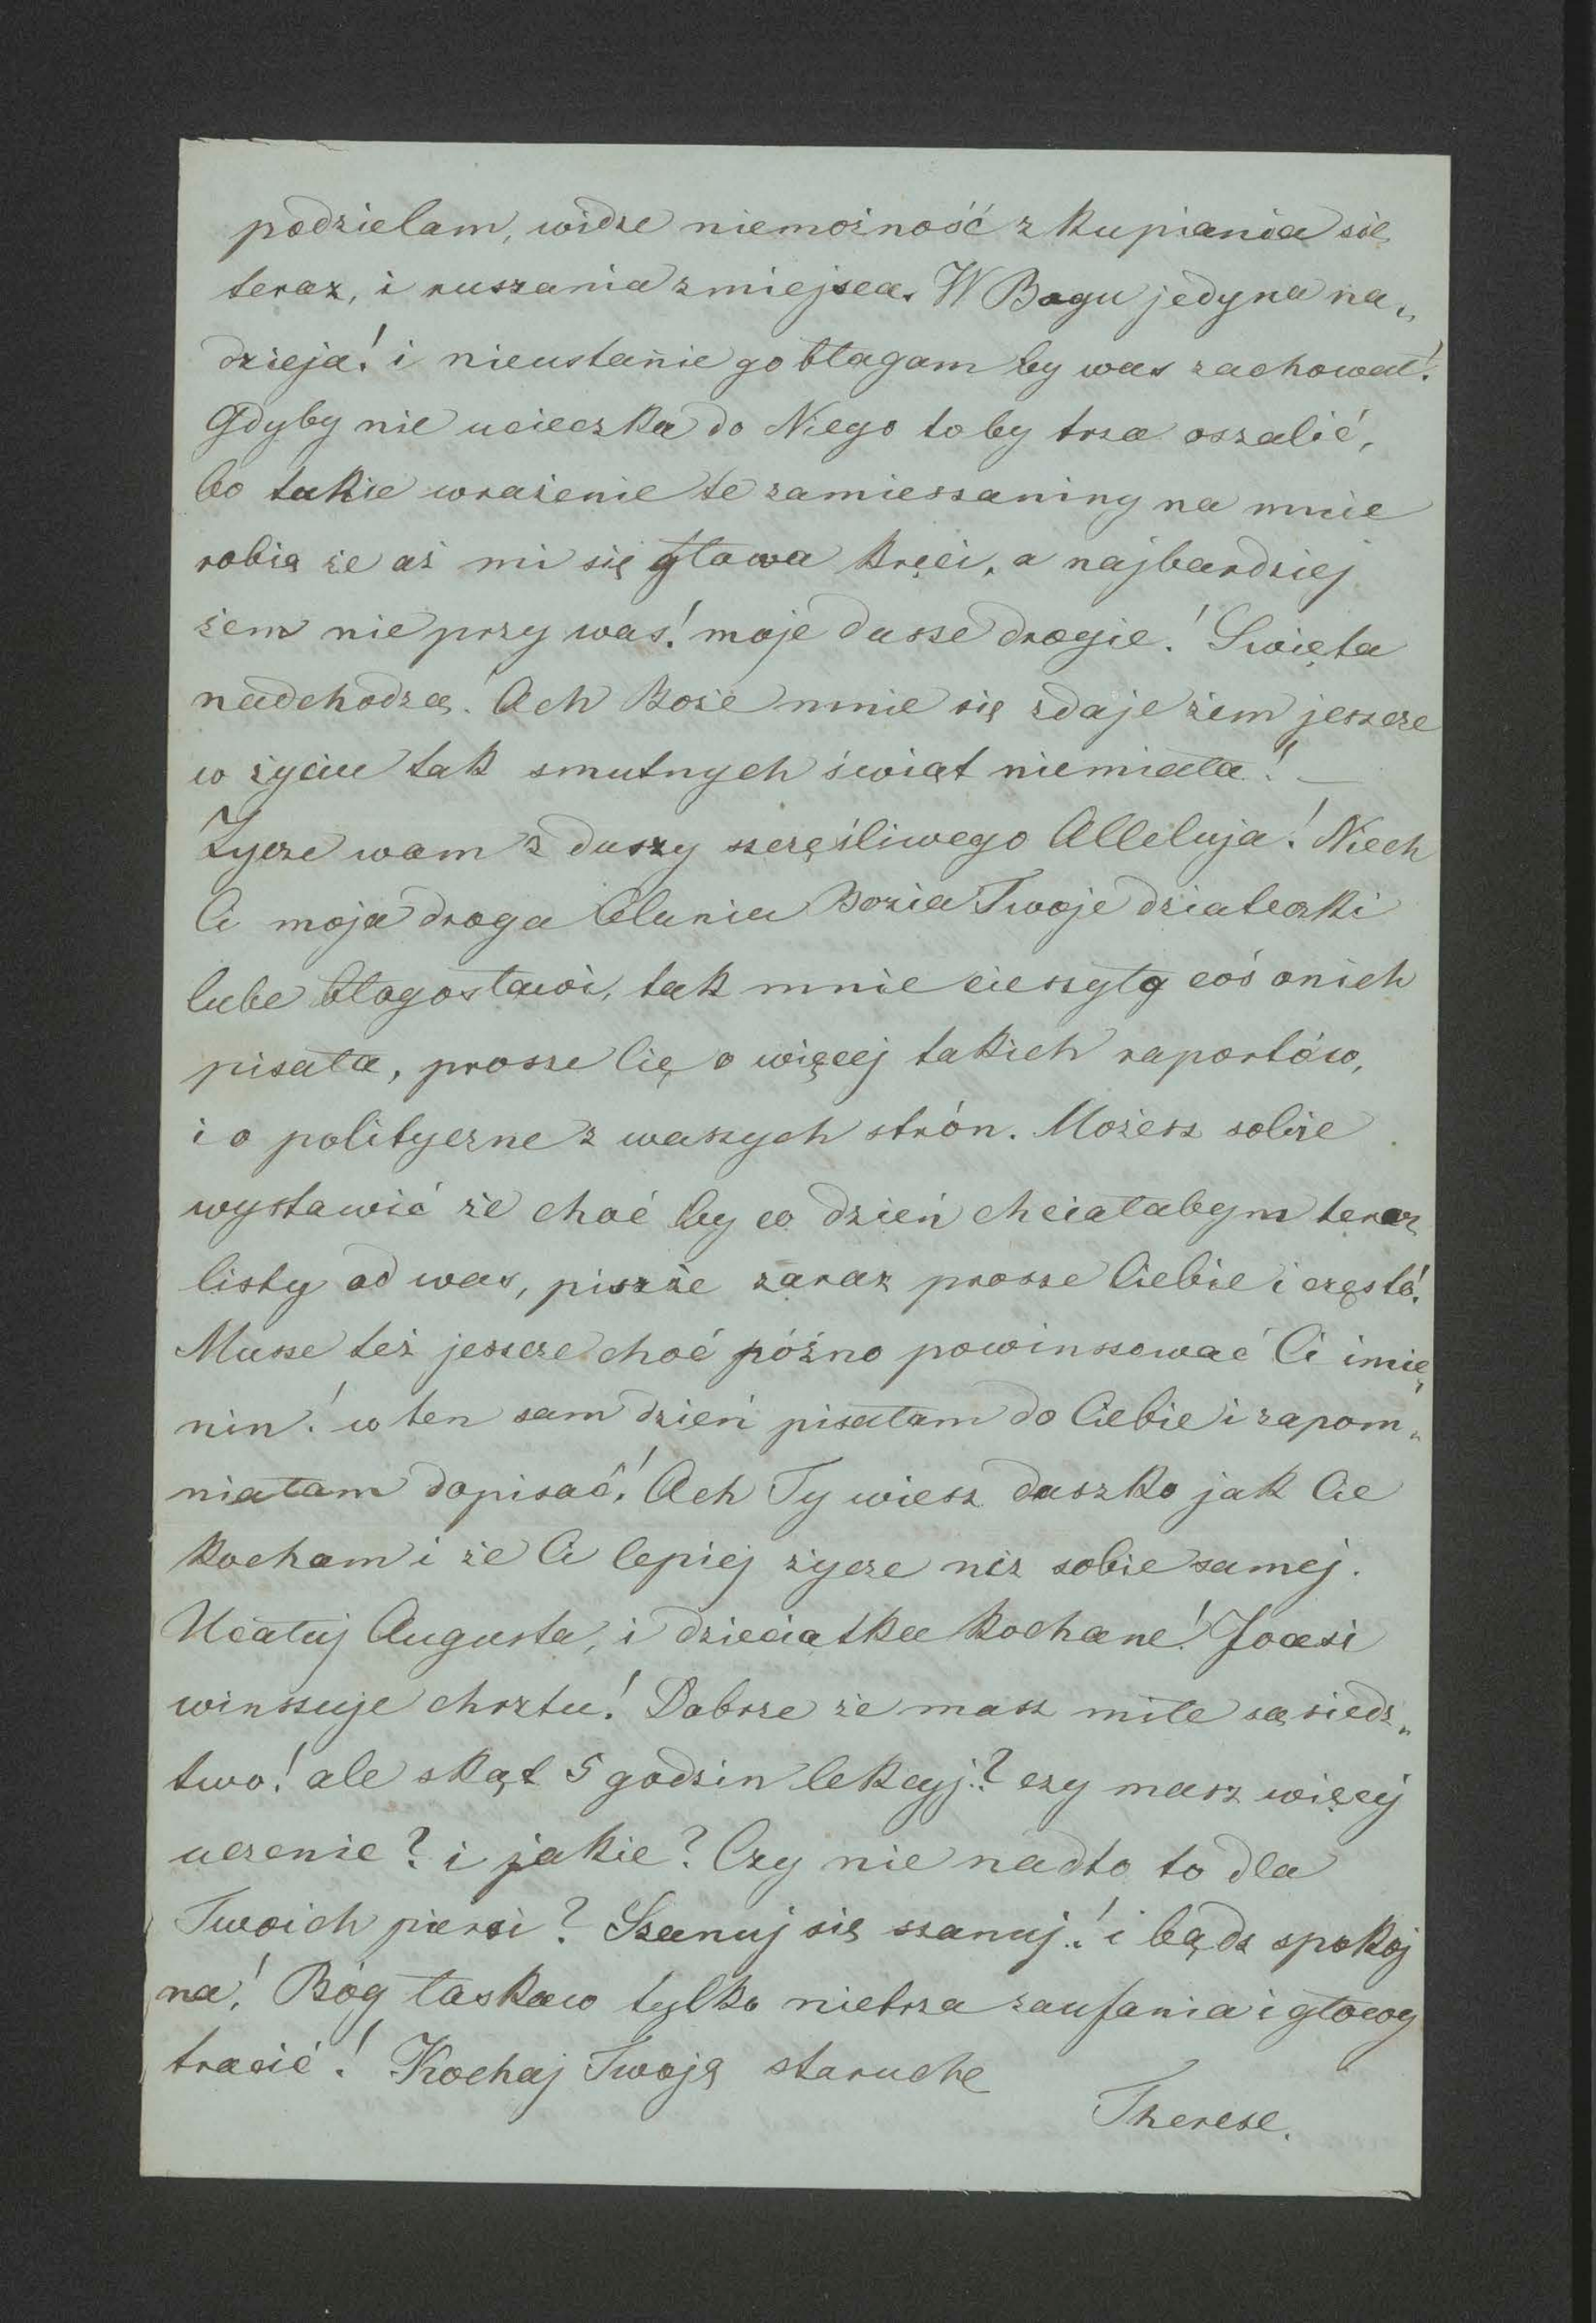 podzielam, widze niemożność zkupiania się
teraz, i ruszania z miejsca. W Bogu jedyna na„
dzieja! i nieustanie go błagam by was zachował!
Gdyby nie ucieczka do Niego toby trza oszalić,
bo takie wrażenie te zamieszaniny na mnie
robią że aż mi się głowa kręci, a najbardziej
żem nie przy was! moje dusze drogie! Święta
nadchodzą! Ach Boże mnie się zdaje żem jeszcze
w życiu tak smutnych świąt niemiała! —
Życze wam z duszy szczęśliwego Alleluja! Niech
Ci moja droga Celuniu Bozia Twoje dziateczki
lube błogosławi, tak mnie cieszyło coś o nich
pisała, prosze Cię o więcej takich raportów,
i o polityczne z waszych strón. Możesz sobie
wystawić że choć by co dzień chciałabym teraz
listy od was, piszże zaraz prosze Ciebie i często!
Musze też jeszcze choć późno powinszować Ci imie„
nin! w ten sam dzień pisałam do Ciebie i zapom„
niałam dopisać! Ach Ty wiesz duszko jak Cie
kocham i że Ci lepiej życze niż sobie samej.
Ucałuj Augusta, i dzieciątka kochane! Joasi
winszuje chrztu! Dobrze że masz miłe sąsiedz„
two! ale skąt 5 godzin lekcyj? czy masz więcej
uczenie? i jakie? Czy nie nadto to dla
Twoich piersi? Szanuj się szanuj! i bądz spokoj
na! Bóg łaskaw tylko nietrza zaufania i głowy
tracić! Kochaj Twoją staruche
Therese.